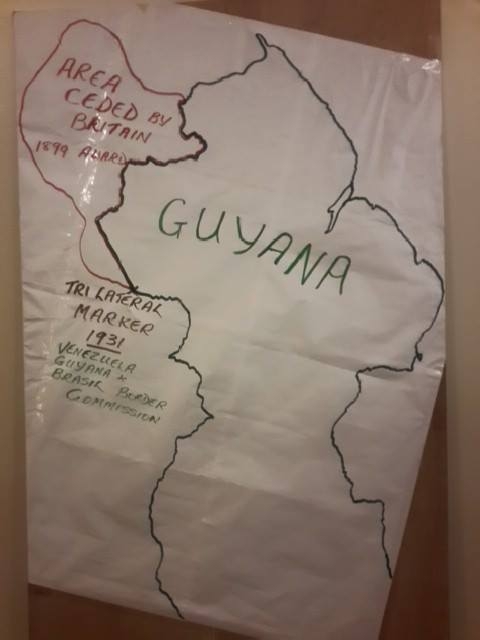 AREA
CEDED BY
BRITAIN
1899 AWARD
GUYANA
TRILATERAL
MARKER
1931
VENEZUELA
GUYANA +
BRASIL BORDER
COMMISSION